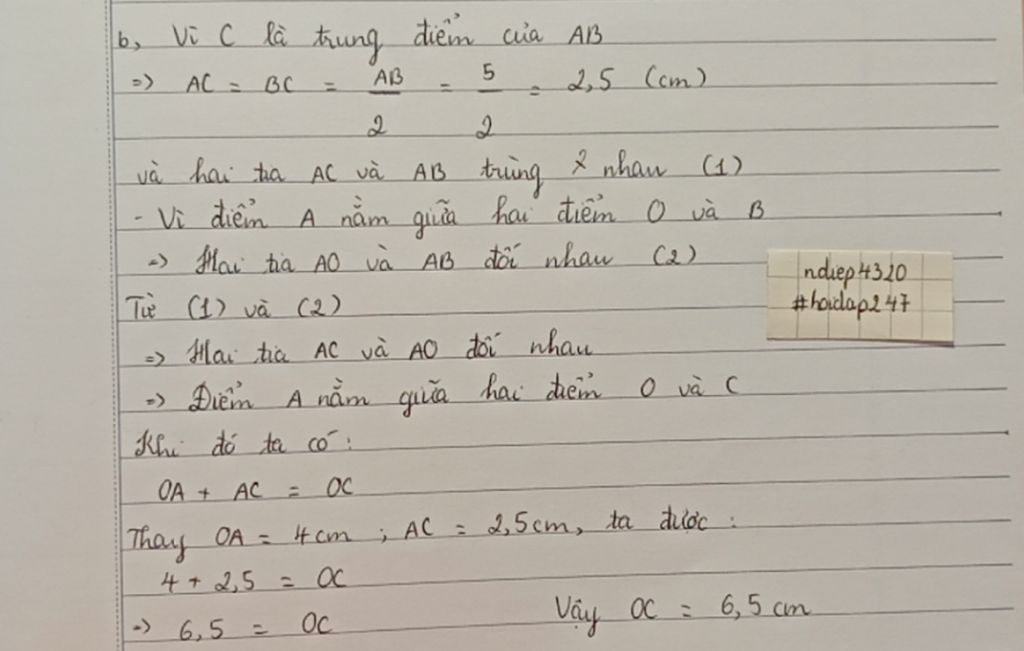 b, Vì C là trung điểm của AB
=> AC = BC = AB/2 = 5/2 = 2,5 (cm)
và hai tia AC và AB trùng nhau (1)
- Vì điểm A nằm giữa hai điểm O và B
=> Hai tia AO và AB đối nhau (2)
Từ (1) và (2)
=> Hai tia AC và AO đối nhau
=> Điểm A nằm giữa hai điểm O và C
Khi đó ta có:
OA + AC = OC
Thay OA = 4cm ; AC = 2,5cm, ta được :
4 + 2,5 = OC
=> 6,5 = OC Vậy OC = 6,5 cm
ndiep4320
#hoidap247